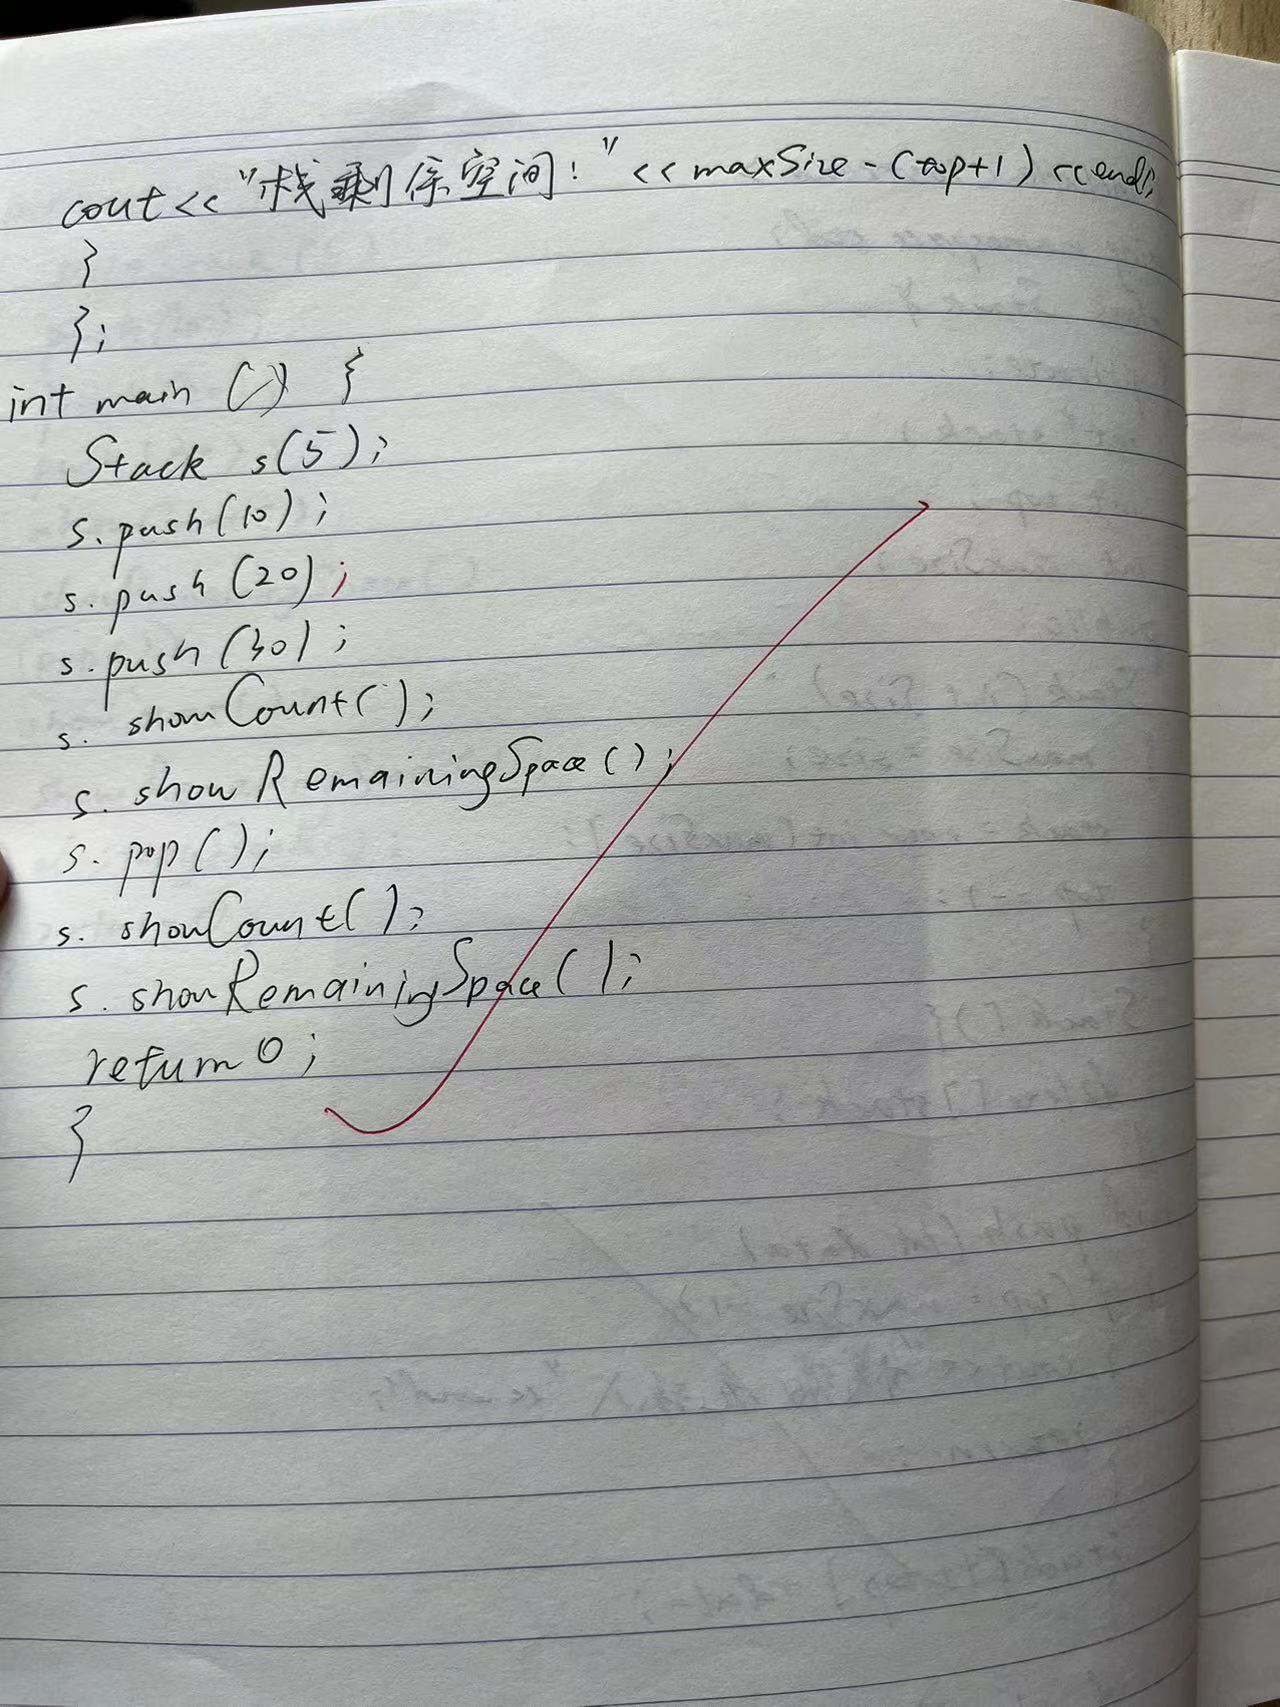 cout << "栈剩余空间:" << maxSize - (top+1) << endl;
}
};
int main () {
Stack s(5);
s.push(10);
s.push(20);
s.push(30);
s. showCount();
s. showRemainingSpace();
s. pop();
s. showCount();
s. showRemainingSpace();
return 0;
}